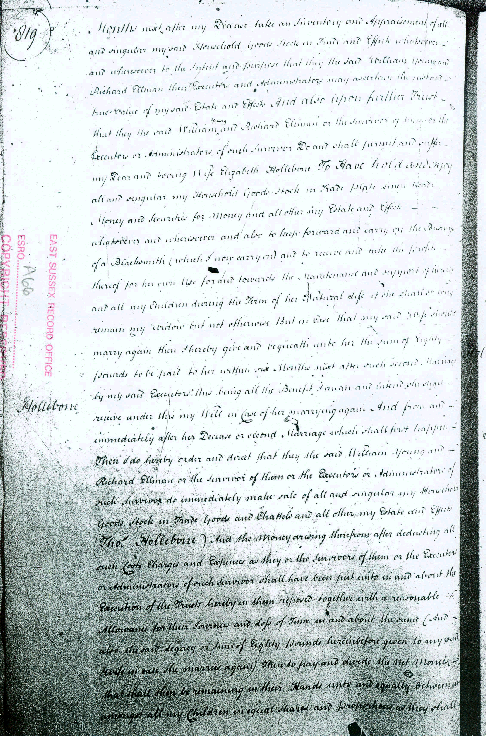 819
Months next after my Decease take an Inventory and Appraisement of all
and singular my said Household Goods Stock in Trade and Effects whatsoever
and wheresoever to the Intent and purpose that they the said William Young and
Richard Ellman their Executors and Administrators may ascertain the
true value of my said Estate and Effects And also upon further Trust
that they the said William and Richard Ellman or the survivor of them or the
Executors or Administrators of such Survivor Do and shall permit and suffer
my Dear and loving Wife Elizabeth Hollebone To Have hold and enjoy
all and singular my Household Goods Stock in Trade Plate Linen
Money and Securities for Money and all other my Estate and Effects
whatsoever and wheresoever and also to keep forward and carry on the Business
of a Blacksmith (which I now carry on) and to receive and take the profits
thereof for her own Use for and towards the Maintenance and support of herself
and all my Children during the Term of her Natural Life if she shall so long
remain my Widow but not otherwise But in Case that my said Wife shall
marry again then I hereby give and bequeath unto her the sum of Eighty
pounds to be paid to her within six Months next after such second Marriage
by my said Executors this being all the Benefit I mean and intend she shall
receive under this my Will in Case of her marrying again And from and
immediately after her Decease or second Marriage which shall first happen
Then I do hereby order and direct that they the said William Young and
Richard Ellman or the survivor of them or the Executors or Administrators of
such survivor do immediately make sale of all and singular my Household
Goods Stock in Trade Goods and Chattels and all other my Estate and Effects
Thos. Hollebone) And the Money arising therefrom after deducting all
such Costs Charges and Expences as they or the Survivors of them or the Executors
or Administrators of such survivor shall have been put unto in and about the
Execution of the Trusts hereby in them reposed together with a reasonable
Allowance for their Journies and loss of Time in and about the same (And
also the said Legacy or Sum of Eighty Pounds hereinbefore given to my said
Wife in case she marries again) Then to pay and divide the Net Monies
that shall then be remaining in their Hands unto and equally between or
amongst all my Children in equal shares and proportions as they shall
Hollebone
EAST SUSSEX RECORD OFFICE
ESRO. A66
COPYRIGHT